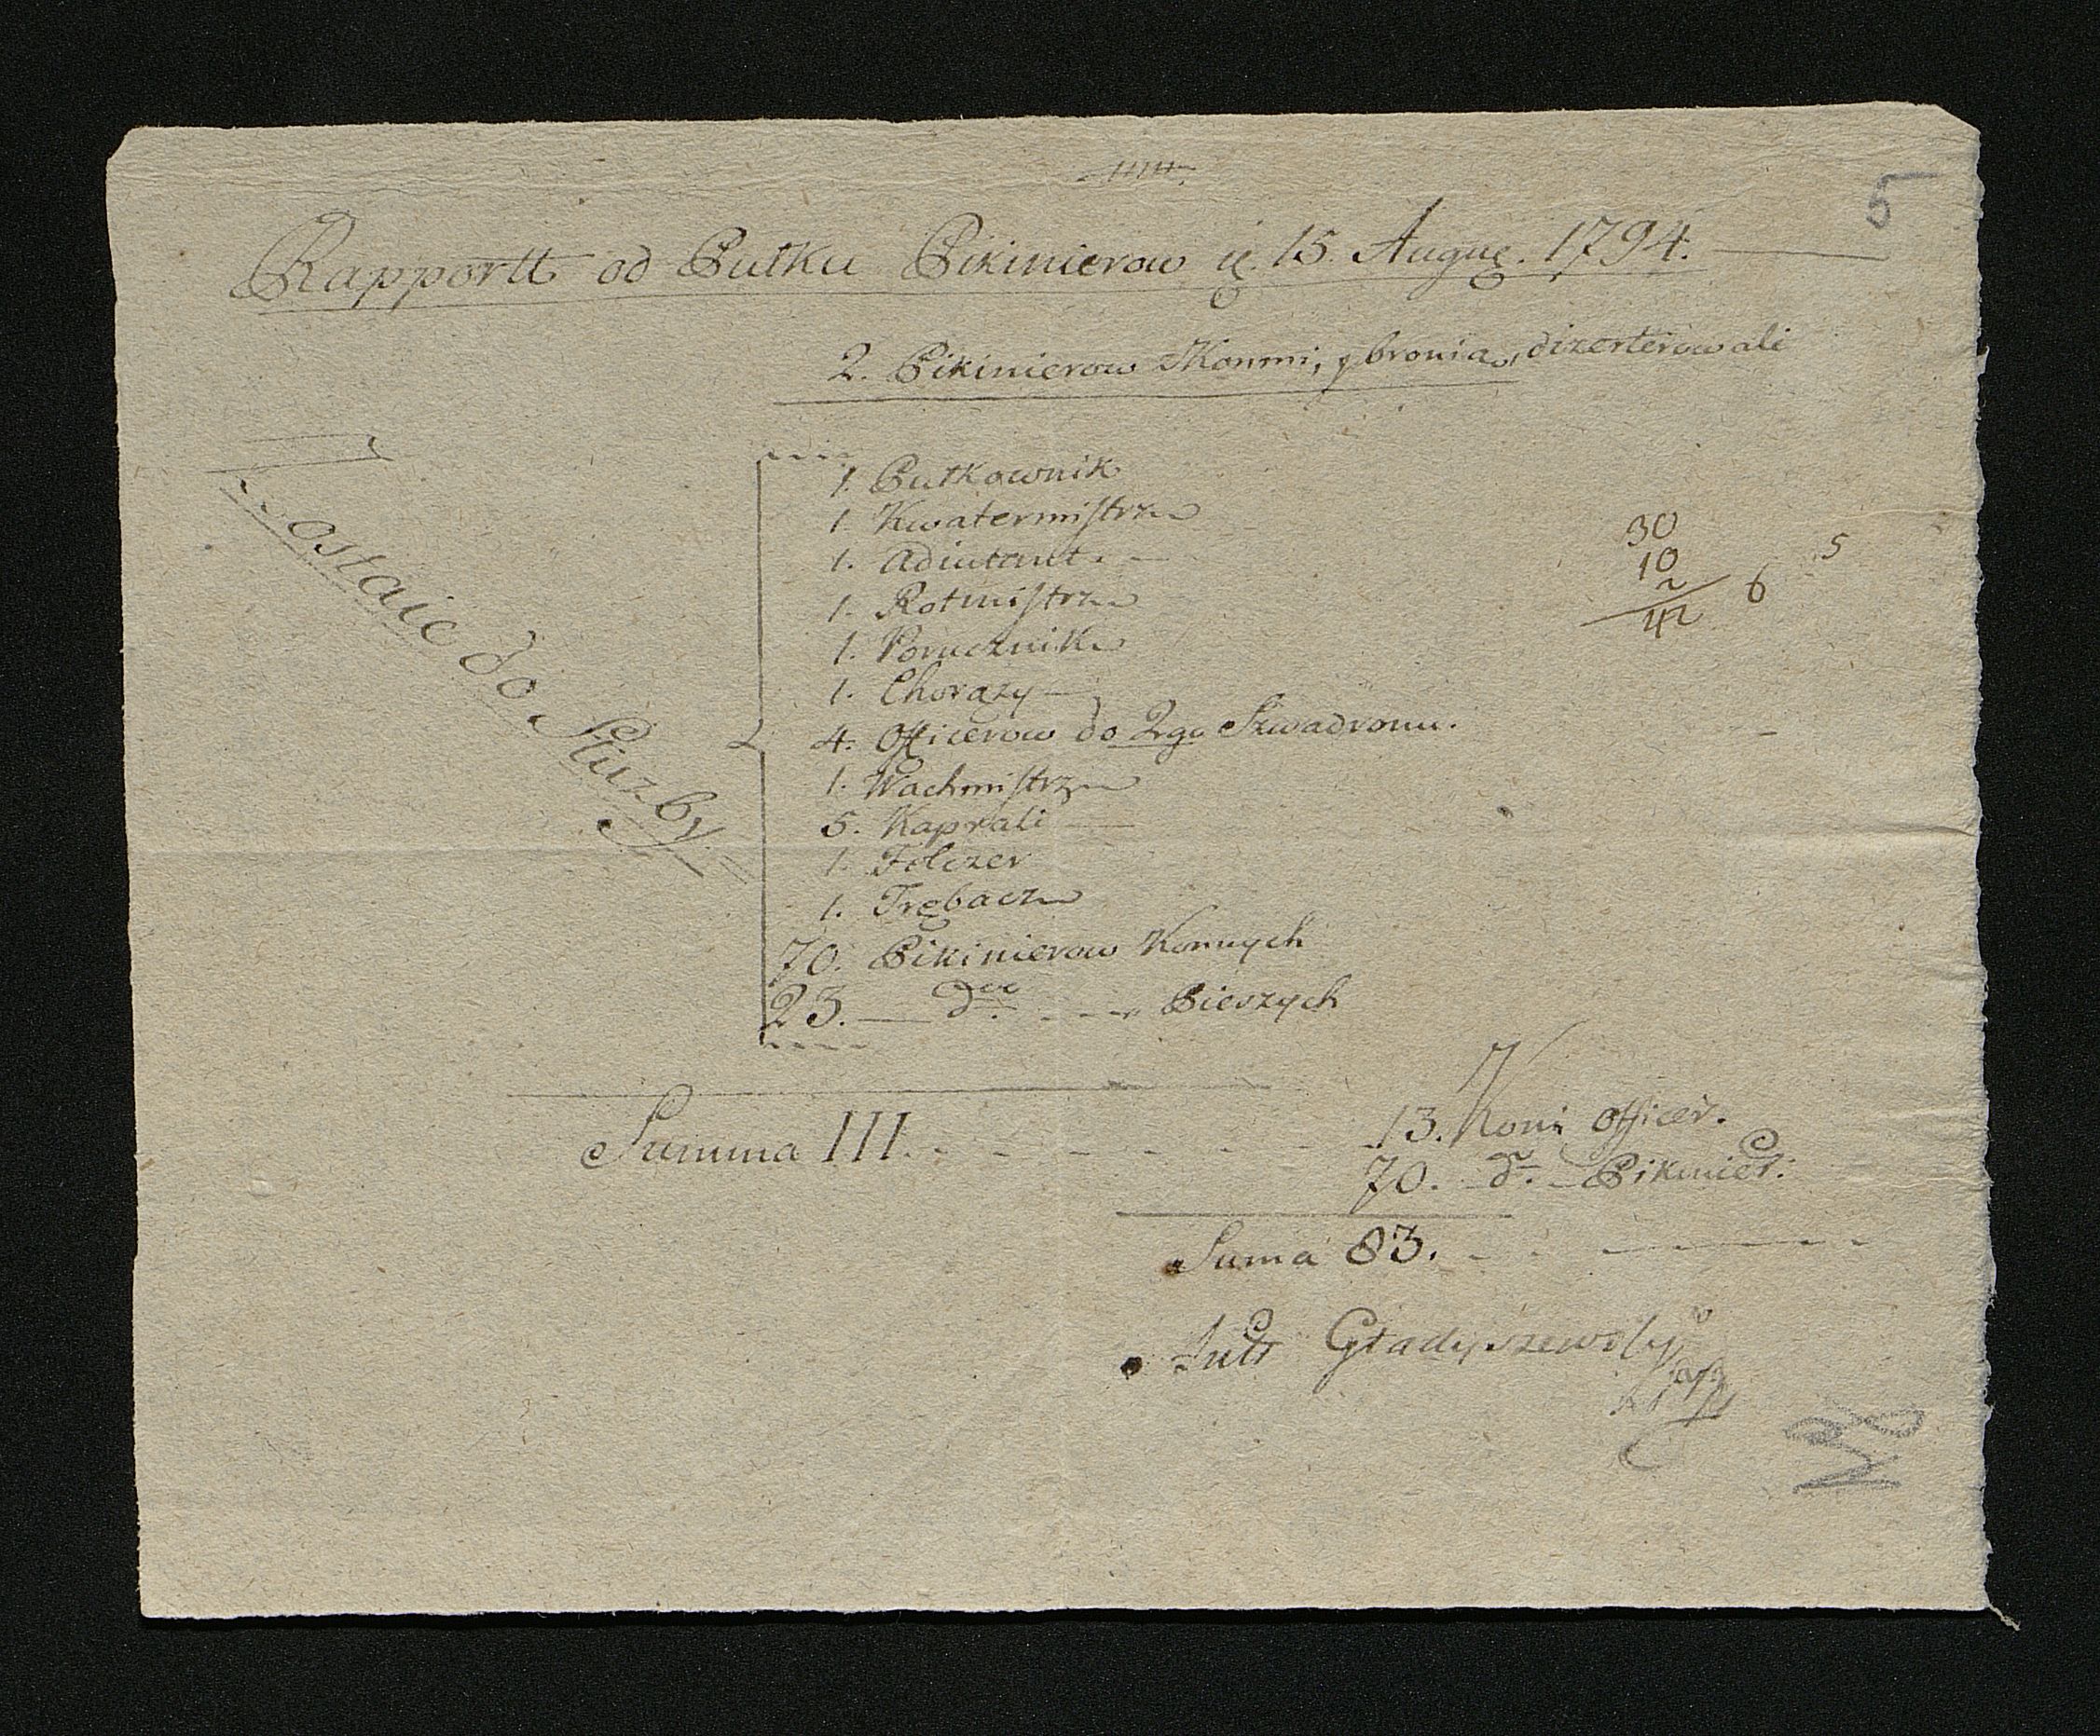 5
Rapportt od Pułku Pikinierow 15. Augus. 1794.
2. Pikinierow z Konmi, y bronią, dizerterowali
Zostaie do Służby
1. Pułkownik
1. Kwatermistrz
1. Adiutant.
1. Rotmistrz
1. Porucznik
1. Chorązy
4. Officerow do 2go Szwadronu.
1. Wachmistrz
5. Kaprali
1. Felczer
1. Trębacz
70. Pikinierow Konnych
23. — dto - - - Pieszych
30
10
2
42
6
5
Summa 111. - - - - - - 13. Koni Officer.
70. do. Pikinier.
Suma 83.
Gładyszewski